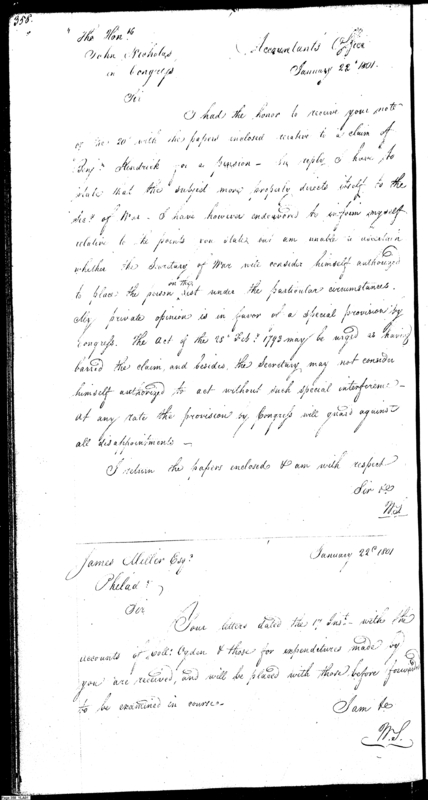 358.
The Honble
John Nicholas
in Congress
Accountants Office
January 22d 1801.
Sir
I had the honor to receive your note
of the 20th with the papers enclosed relative to a claim of
Benjn Kendrick for a Pension - In reply I have to
state that the subject more properly directs itself to the
Secy of War - I have however endeavored to inform myself
relative to the points you state, and am unable to ascertain
whether the Secretary of War will consider himself authorized
to place the person on the list under the particular circumstances.
My private opinion is in favor of a special provision by
Congress. The Act of the 28th Feby 1793 may be urged as having
barred the claim, and besides the Secretary may not consider
himself authorized to act without such special interference -
at any rate the provision by Congress will guard against
all disappointments -
I return the papers enclosed & am with respect
Sir &c
WS
James Miller Esqr
January 22d 1801
Philada
Sir
Your letters dated the 1st Inst - with the
accounts of Colo Ogden & those for expenditures made by
you are received, and will be placed with those before forwarded
to be examined in course -
I am &c
W.S.